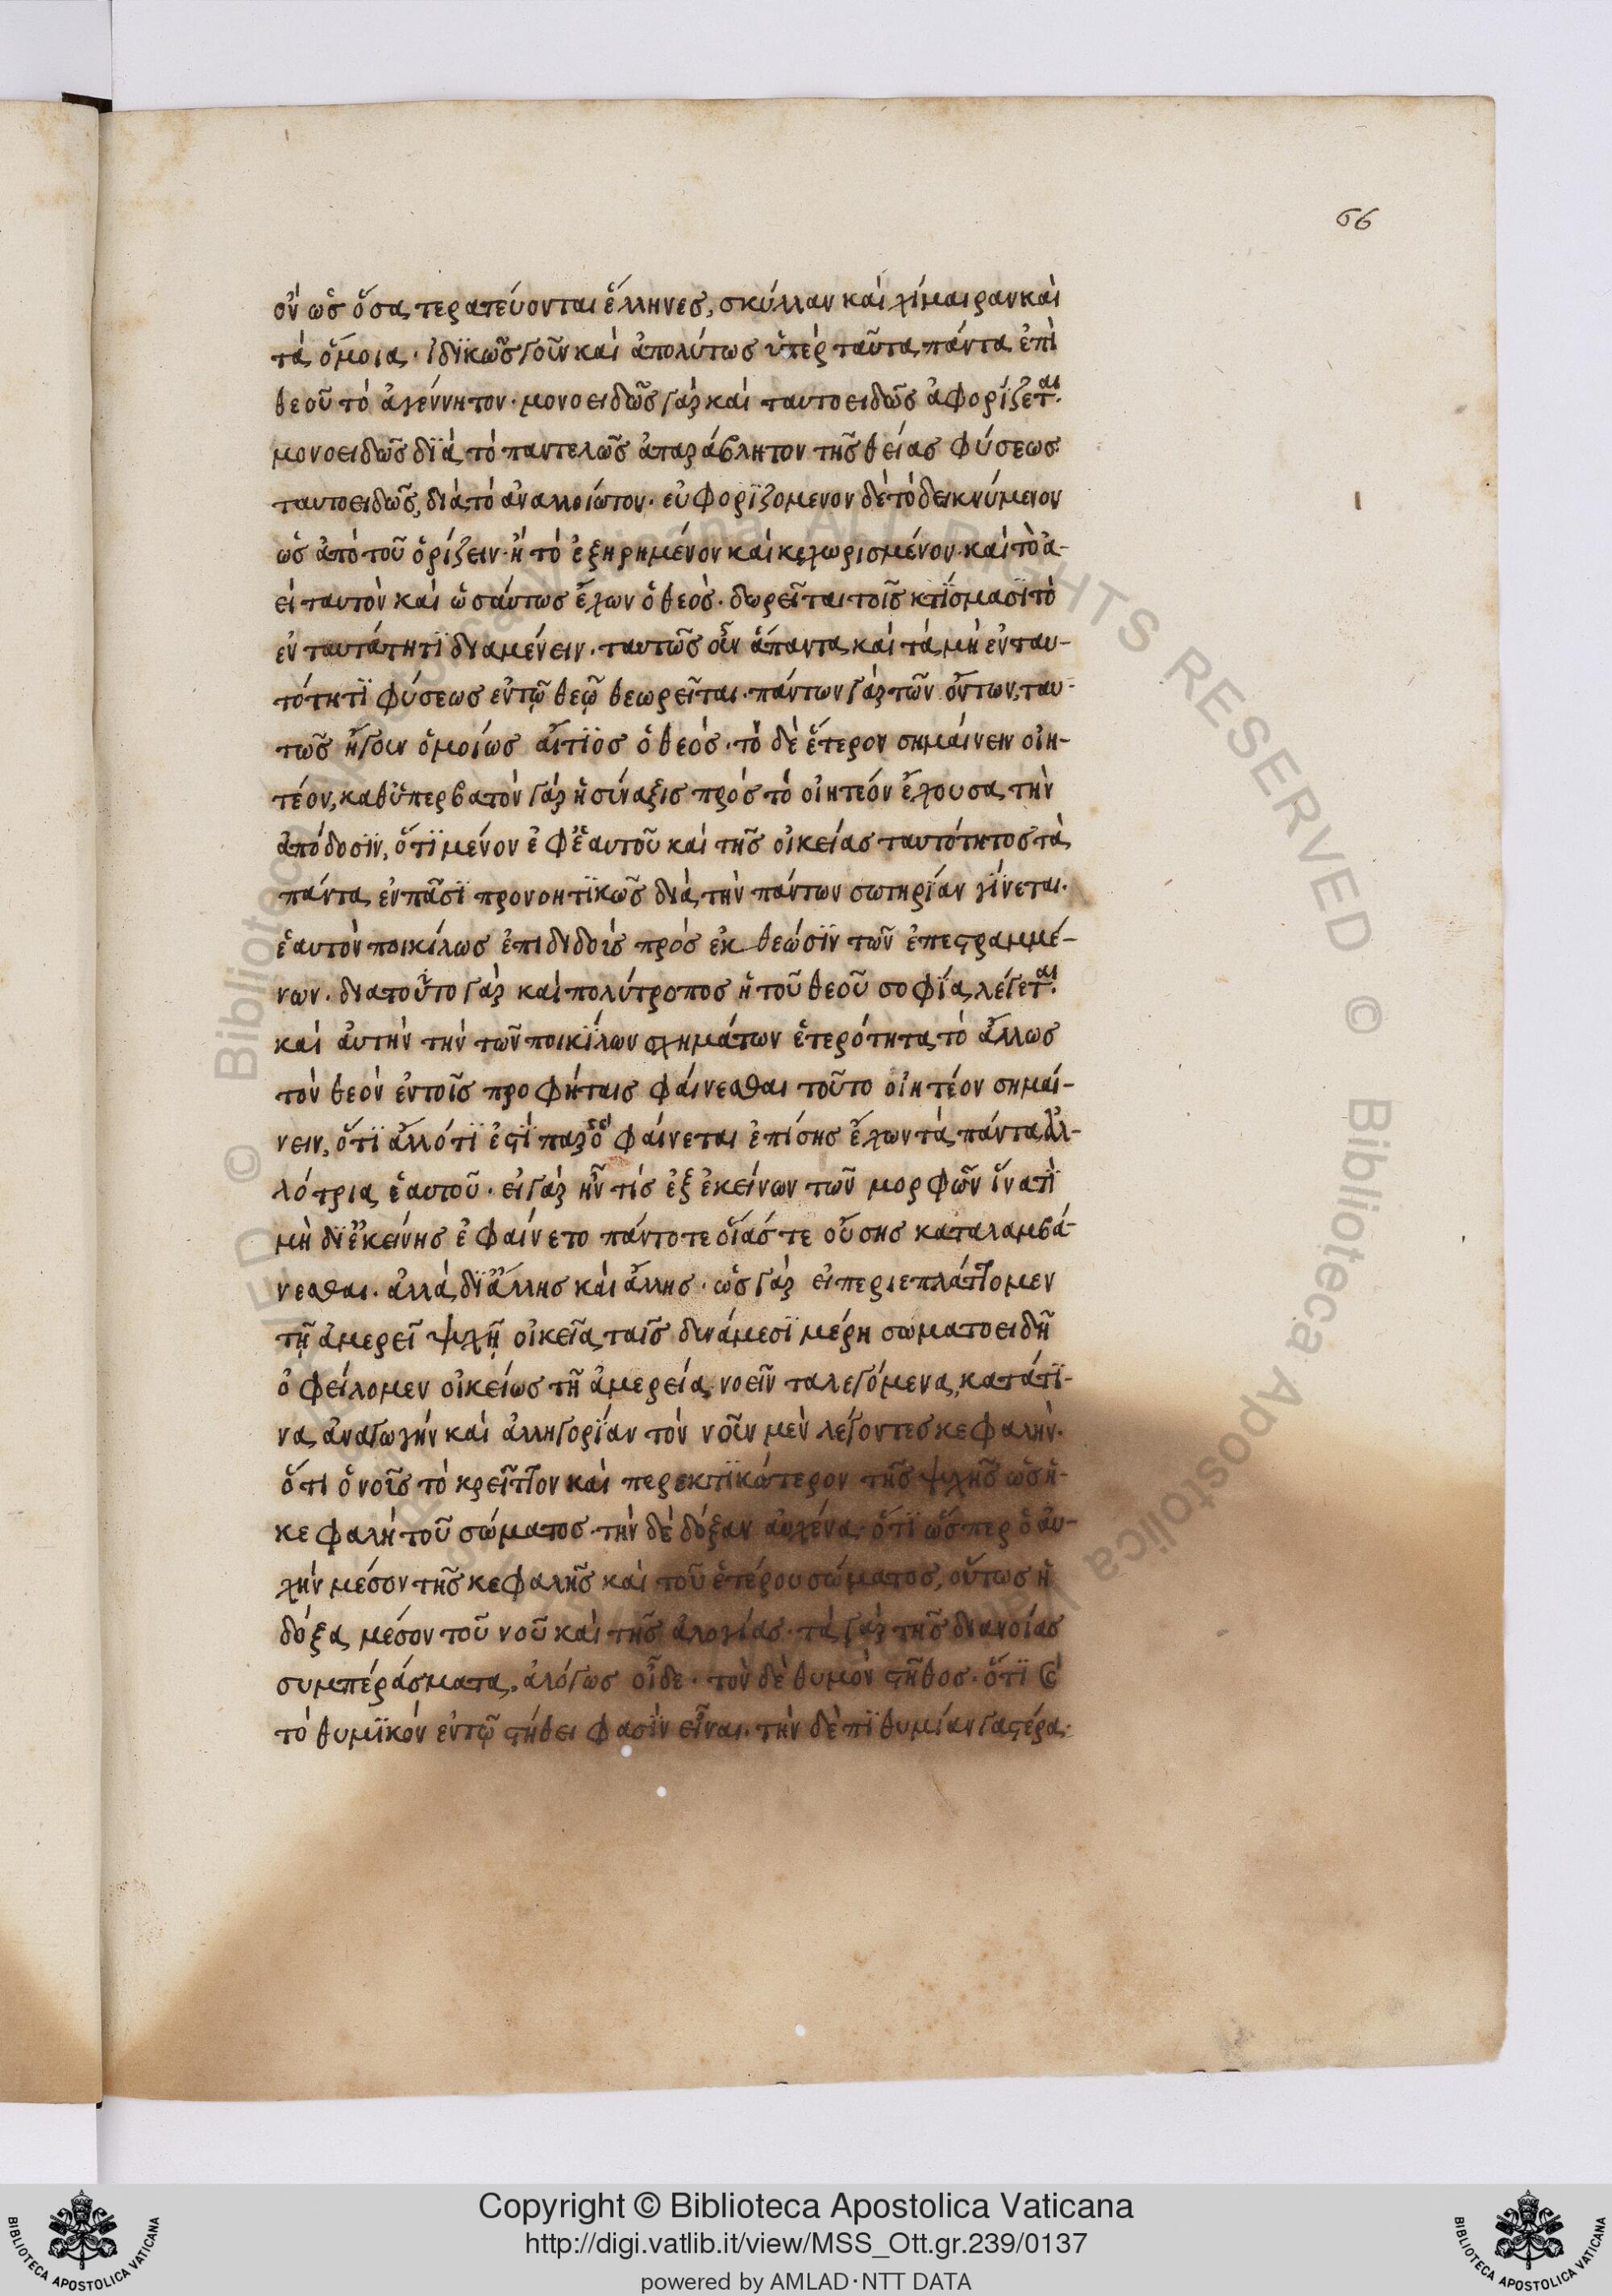 66
ὂν ὡς ὅσα τερατεύονται ἕλληνες, σκύλλαν καὶ χίμαιραν καὶ
τὰ ὅμοια· ἰδϊκῶς γοῦν καὶ ἀπολύτως ὑπὲρ ταῦτα πάντα ἐπὶ
θεοῦ τὸ ἀγέννητον· μονοειδῶς γὰρ καὶ ταυτοειδῶς ἀφορίζεται·
μονοειδῶς δϊὰ τὸ παντελῶς ἀπαράβλητον τῆς θείας φύσεως·
ταυτοειδῶς, διὰ τὸ ἀναλλοίωτον· εὐφορϊζόμενον δὲ τὸ δεικνύμενον
ὡς ἀπὸ τοῦ ὁρίζειν· ἢ τὸ ἐξηρημένον καὶ κεχωρισμένον· καὶ τὸ ἀ-
εὶ ταυτὸν καὶ ὡσαύτως ἔχων ὁ θεὸς· δωρεῖται τοῖς κτίσμασϊ τὸ
ἐν ταυτάτητϊ διαμένειν· ταυτῶς οὖν ἅπαντα καὶ τὰ μὴ ἐν ταυ-
τότητϊ φύσεως ἐν τῷ θεῷ θεωρεῖται· πάντων γὰρ τῶν ὄντων, ταυ-
τῶς ἤγουν ὁμοίως αἴτϊος ὁ θεός· τὸ δὲ ἕτερον σημαίνειν οἰη-
τέον, καθ' ὑπερβατὸν γὰρ ἡ σύναξις πρὸς τὸ οἰητέον ἔχουσα τὴν
ἀπόδοσϊν, ὅτϊ μένον ἐφ' ἑαυτοῦ καὶ τῆς οἰκείας ταυτότητος τὰ
πάντα ἐν πᾶσϊ προνοητϊκῶς διὰ τὴν πάντων σωτηρϊαν γίνεται·
ἑαυτὸν ποικίλως ἐπιδιδοὺς πρὸς ἐκθεώσϊν τῶν ἐπεστραμμέ-
νων· διατοῦτο γὰρ καὶ πολύτροπος ἡ τοῦ θεοῦ σοφϊα λέγεται·
καὶ αὐτὴν τὴν τῶν ποικϊλων σχημάτων ἑτερότητα τὸ ἄλλως
τὸν θεὸν ἐν τοῖς προφήταις φαίνεσθαι τοῦτο οἰητέον σημαί-
νειν, ὅτϊ ἄλλό τϊ ἐστϊ παρ' ὃ φαίνεται ἐπίσης ἔχων τὰ πάντα ἀλ-
λότρια ἑαυτοῦ· εἰ γὰρ ἦν τίς ἐξ ἐκείνων τῶν μορφῶν ἵνατϊ
μὴ δϊ' ἐκείνης ἐφαίνετο πάντοτε οἵας τε οὔσης καταλαμβά-
νεσθαι· ἀλλὰ δϊ' ἄλλης καὶ ἄλλης· ὡς γὰρ εἰ περιεπλάττομεν
τῇ ἀμερεῖ ψχῇ οἰκεῖα ταῖς δυνάμεσϊ μέρη σωματοειδῆ
ὀφείλομεν οἰκείως τῇ ἀμερεία νοεῖν τα λεγόμενα, κατάτϊ-
να ἀναγωγὴν καὶ ἀλληγορϊαν τὸν νοῦν μὲν λέγοντες κεφαλήν·
ὅτι ὁ νοῦς τὸ κρεῖττον καὶ περεκτϊκώτερον τῆς ψχῆς ὡς ἡ
κεφαλὴ τοῦ σώματος· τὴν δὲ δόξαν αὐχένα· ὅτϊ ὥσπερ ὁ αὐ-
χὴν μέσον τῆς κεφαλῆς καὶ τοῦ ἑτέρου σώματος, οὕτως ἡ
δόξα μέσον τοῦ νοῦ καὶ τῆς ἀλογίας· τὰ γὰρ τῆς διανοίας
συμπεράσματα, ἀλόγως οἶδε· τὸν δὲ θυμὸν στῆθος· ὅτϊ καὶ
τὸ θυμϊκὸν ἐν τῷ στήθει φασὶν εἶναι· τὴν δὲ πϊθυμίαν γαστέρα·
Copyright © Biblioteca Apostolica Vaticana
http://digi.vatlib.it/view/MSS_Ott.gr.239/0137
powered by AMLAD·NTT DATA
BIBLIOTECA APOSTOLICA VATICANA
BIBLIOTECA APOSTOLICA VATICANA